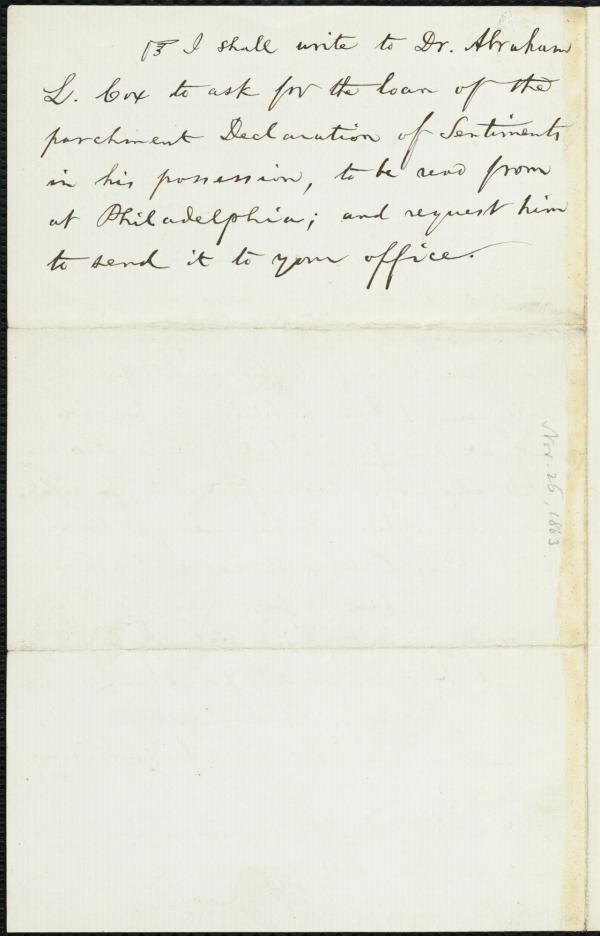 ☞ I shall write to Dr. Abraham
L. Cox to ask for the loan of the
parchment Declaration of Sentiments
in his possession, to be read from
at Philadelphia; and request him
to send it to your office.
Nov. 26, 1883